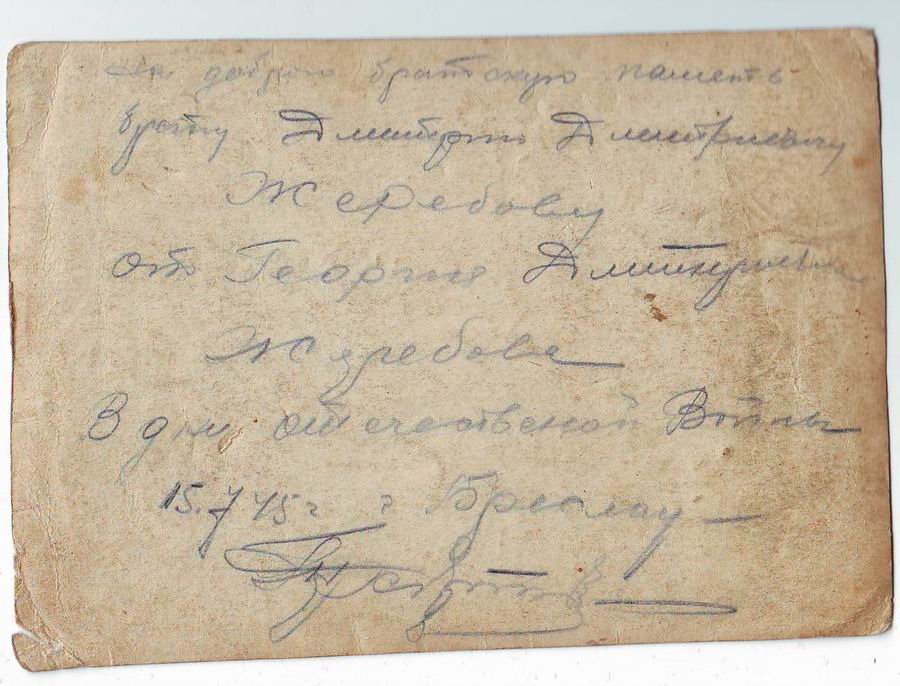 На добрую братскую память
брату Дмитрию Дмитриевичу
Жеребову
от Георгия Дмитриевича
Жеребова
В дни отечественой Войны
15. 45г г Бреслау